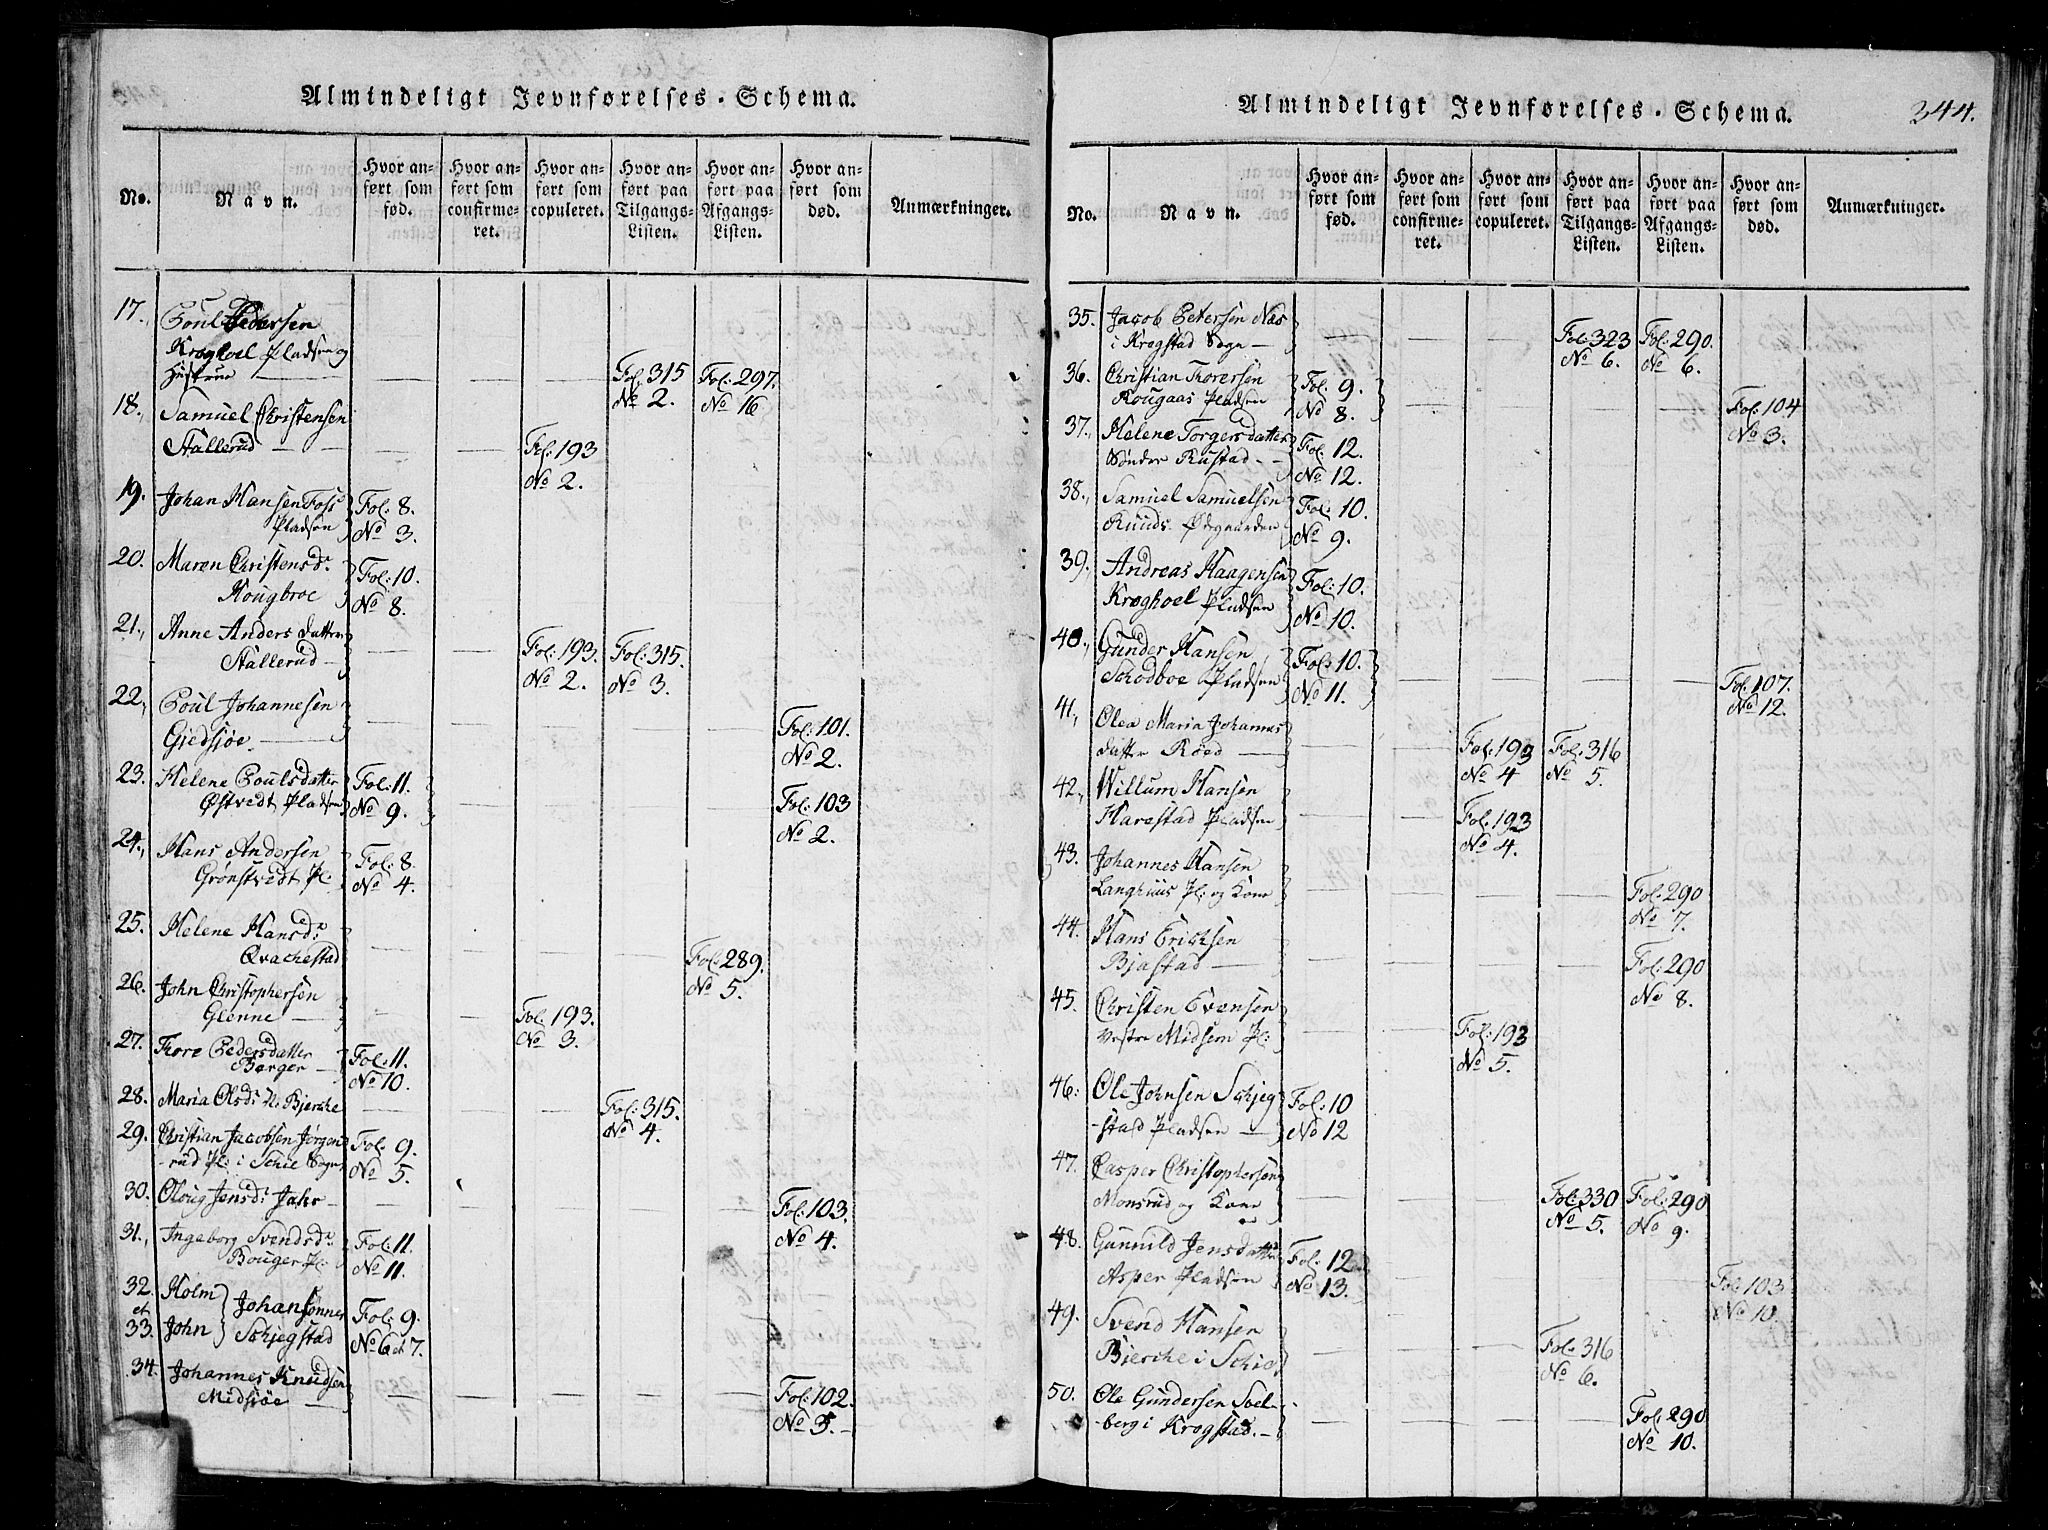 Almindeligt Jevnførelses-Schema.
No. Navn. Hvor anført som fød. Hvor anført som confirmeret. Hvor anført som copuleret. Hvor anført paa Tilgangs-Listen. Hvor anført paa Afgangs-Listen. Hvor anført som død. Anmærkninger.
17. Poul Pedersen
Kroghoel Pladsen og
Hustrue Fol: 315 Fol: 297.
No 2. No 16
18. Samuel Christensen
Stallerud Fol: 193
No 2.
19. Johan Hansen Foss Fol: 8.
Pladsen No 3.
20. Maren Christensd.r Fol: 10.
Kougbroe No 8.
21. Anne Anders datter
Stallerud Fol: 193. Fol: 315.
No 2. No 3.
22. Poul Johannesen
Giedsjøe Fol: 101.
No 2.
23. Helene Poulsdatter Fol: 11.
Østvedt Pladsen No 9. Fol: 103
No 2.
24. Hans Andersen Fol: 8.
Grønstvedt Pl: No 4.
25. Helene Hansd.r
Qvachestad Fol: 289.
No 5.
26. John Christophersen
Glenne Fol: 193.
No 3.
27. Thore Pedersdatter Fol: 11.
Berger No 10.
28. Maria Olsd: N. Bjerche Fol: 315.
No 4.
29. Christian Jacobsen Jørgen Fol: 9.
-rud Pl: i Schie Sogn No 5.
30. Oloug Jensd: Jahr Fol: 103.
No 4.
31. Ingeborg Svendsd.r Fol: 11.
Bouger Pl: No 11.
32. Holm Johansønner Fol: 9.
et
33. John Schjegstad No 6 et 7.
34. Johannes Knudsen
Midsjøe Fol: 102.
No 3.
Almindeligt Jevnførelses-Schema. 344.
No. Navn. Hvor anført som fød. Hvor anført som confirmeret. Hvor anført som copuleret. Hvor anført paa Tilgangs-Listen. Hvor anført paa Afgangs-Listen. Hvor anført som død. Anmærkninger.
35. Jacob Petersen Næs
i Krogstad Sogn Fol: 323 Fol: 290.
No 6. No 6.
36. Christian Thorersen Fol: 9.
Kougaas Pladsen No 8. Fol: 104
No 3.
37. Helene Torgersdatter Fol: 12.
Sønder Rustad No 12.
38. Samuel Samuelsen Fol: 10.
Ruuds Ødegaarden No 9.
39. Andreas Haagensen Fol: 10.
Kroghoel Pladsen No 10.
40. Gunder Hansen Fol: 10.
Schodboe Pladsen No 11. Fol: 107.
No 12.
41. Olea Maria Johannes
datter Røed Fol: 193 Fol: 316
No 4 No 5.
42. Willum Hansen
Harestad Pladsen Fol: 193
No 4.
43. Johannes Hansen
Langhuus Pl: og Kone Fol: 290
No 7.
44. Hans Erichsen
Bjastad Fol: 290
No 8.
45. Christen Evensen
vestre Midsem Pl: Fol: 193
No 5.
46. Ole Johnsen Schjeg Fol: 10
-stad Pladsen No 12
47. Casper Christophersen
Monsrud og Kone Fol: 330 Fol: 290
No 5. No 9.
48. Gunnild Jensdatter Fol: 12
Asper Pladsen No 13. Fol: 103
No 10.
49. Svend Hansen
Bjerche i Schie Fol: 316
No 6.
50. Ole Gundersen Soel-
-berg i Krogstad. Fol: 290
No 10.